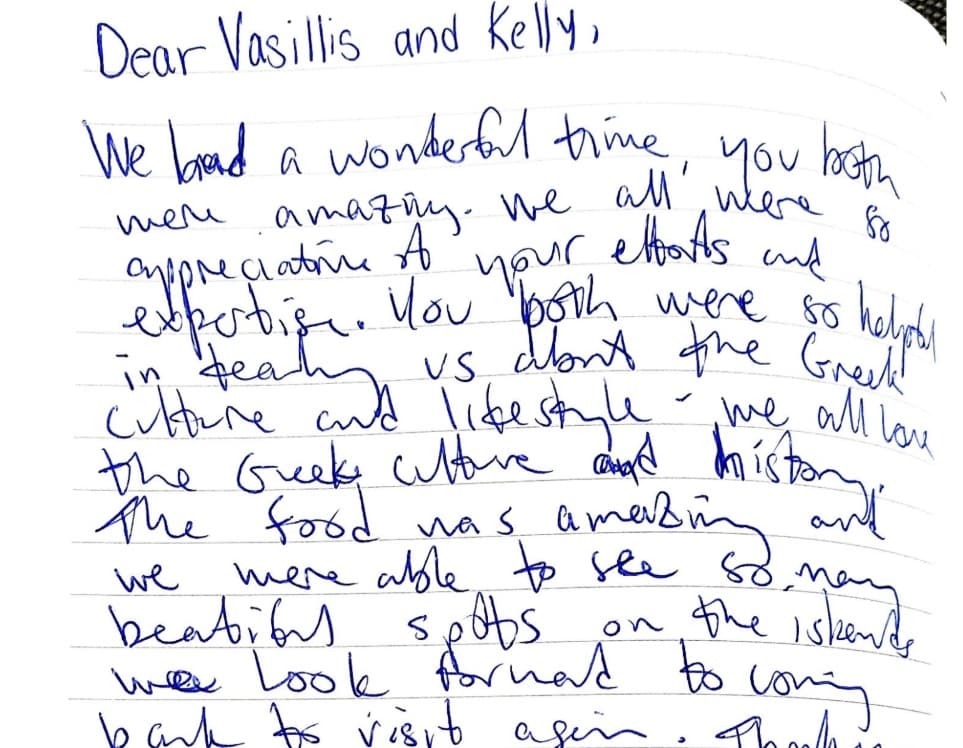 Dear Vasillis and Kelly,
We had a wonderful time, you both
were amazing. We all were so
appreciative of your efforts and
expertise. You both were so helpful
in teaching us about the Greek
culture and lifestyle - we all love
the Greek culture and history.
The food was amazing and
we were able to see so many
beatiful spots on the islands
we look forward to coming
back to visit again. Thank